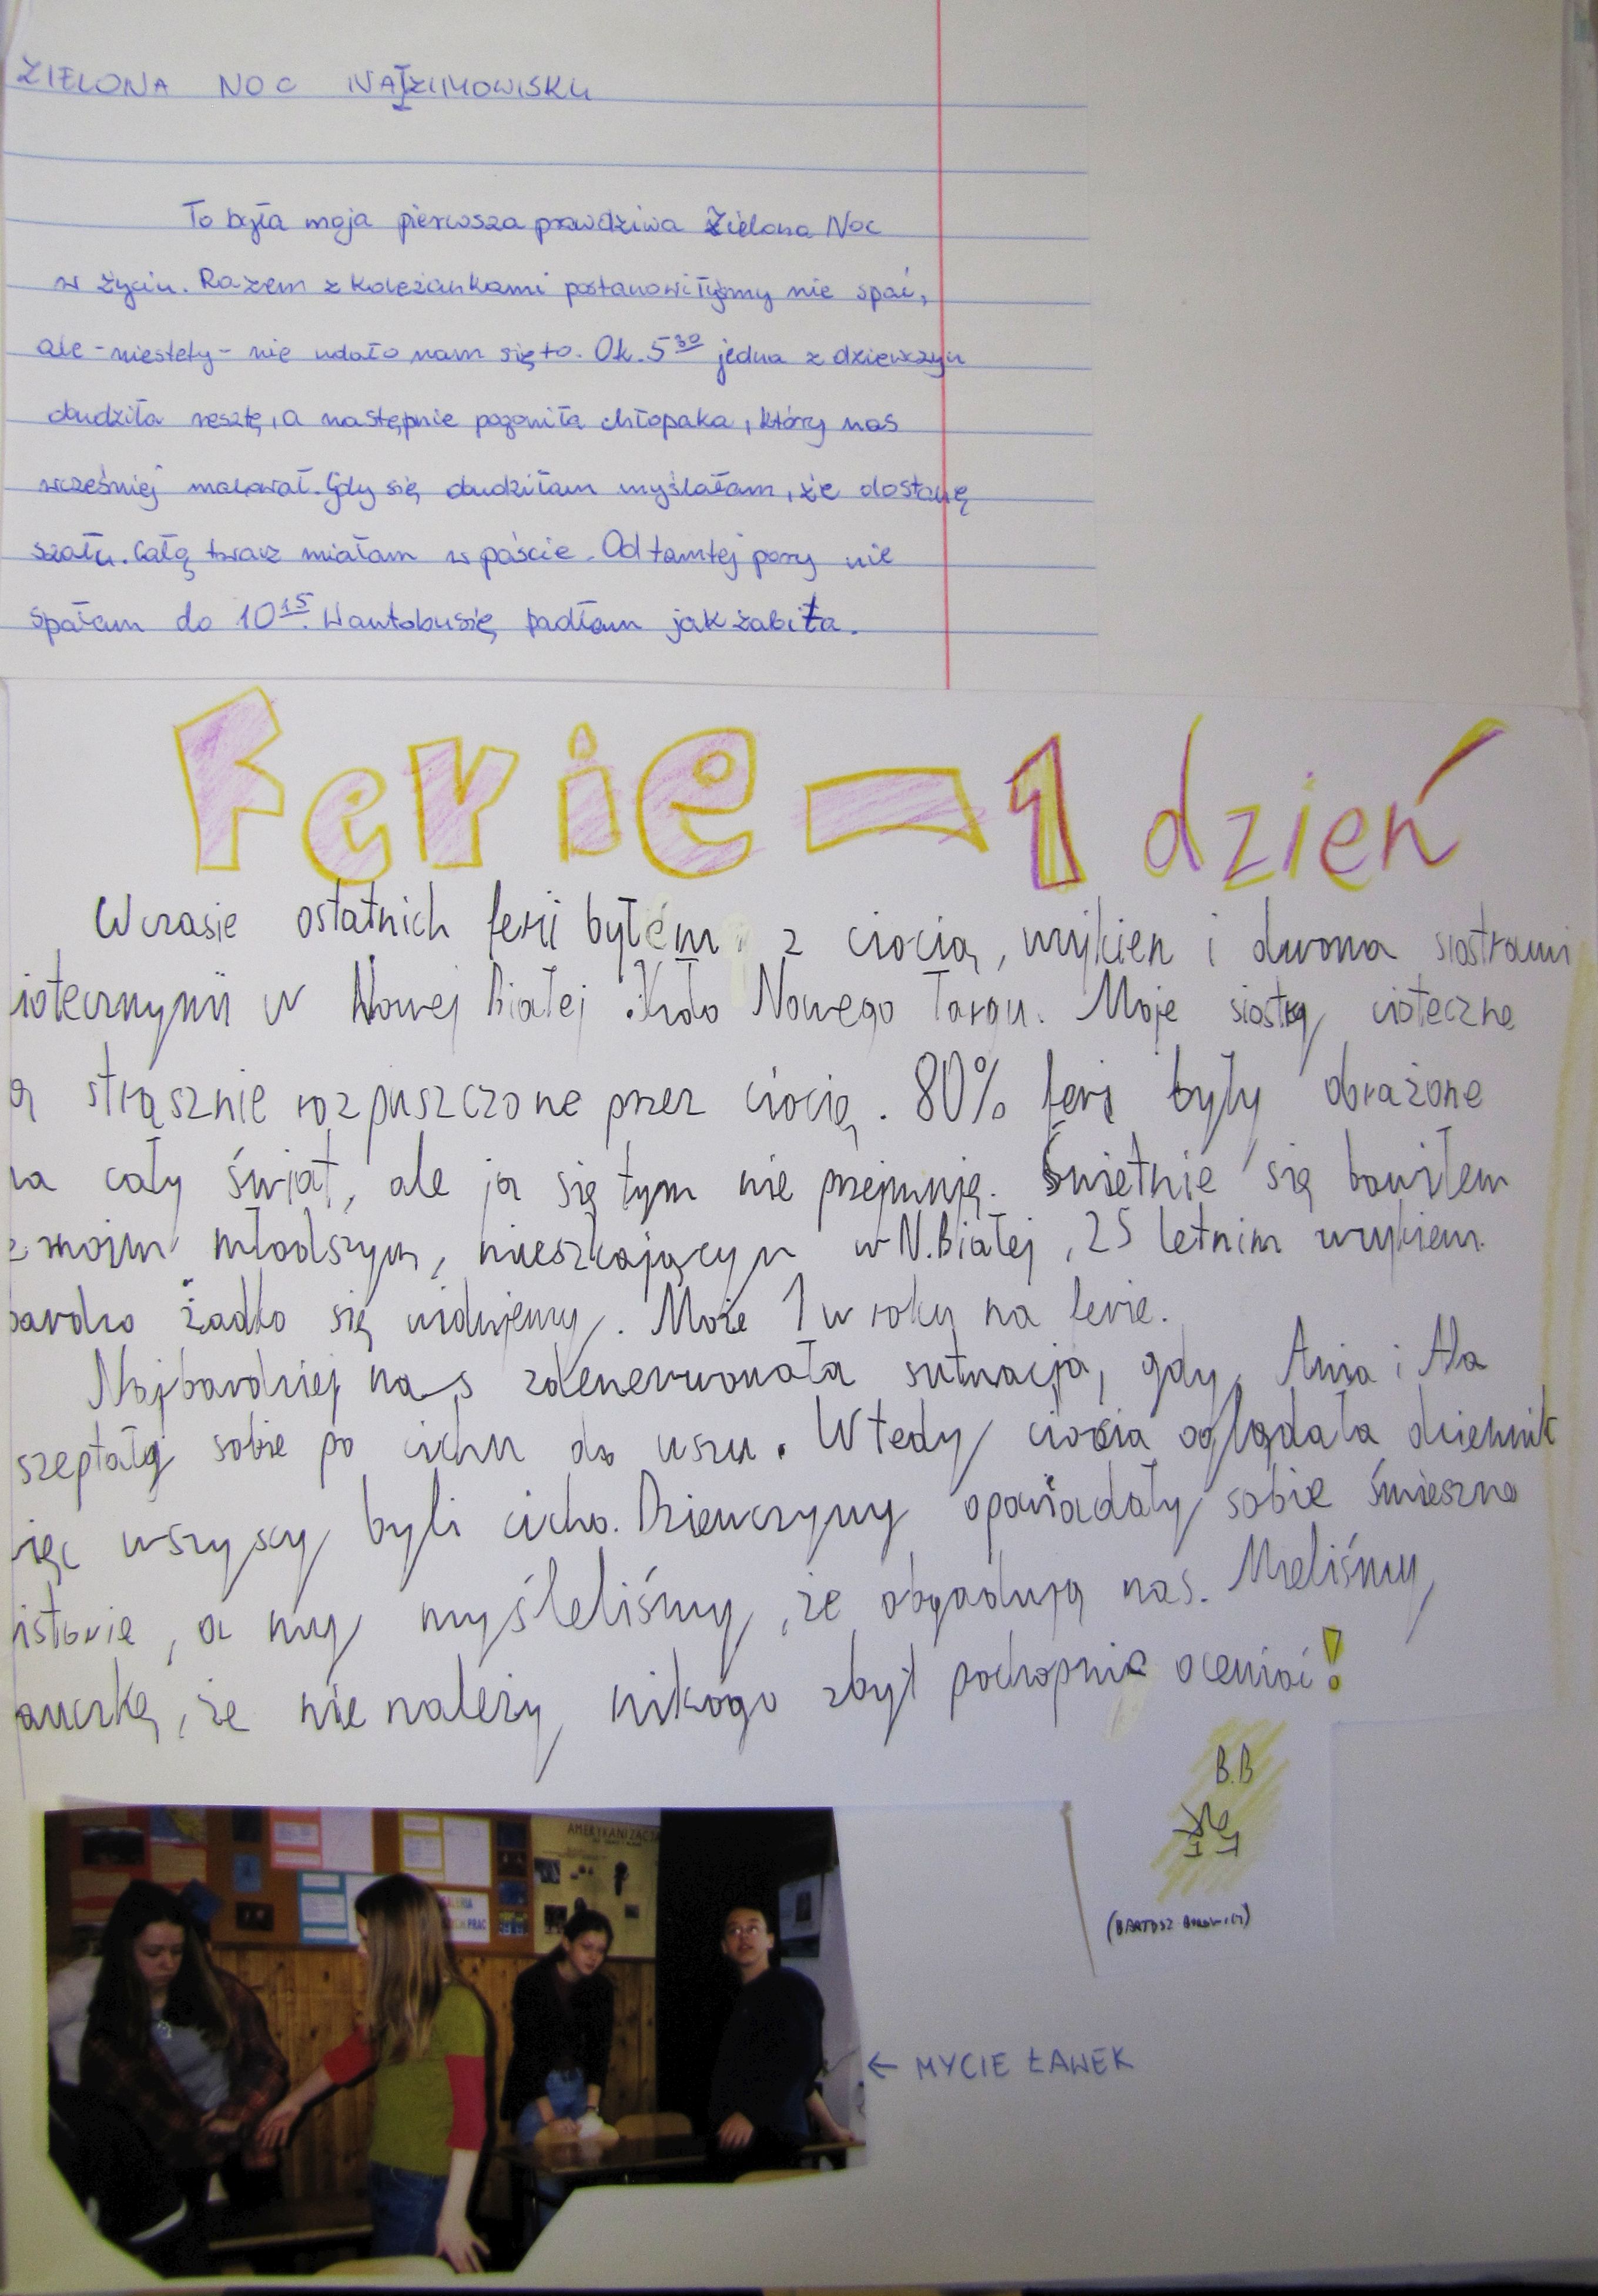 ZIELONA NOC NA ZIMOWISKU
To była moja pierwsza prawdziwa Zielona Noc
w życiu. Razem z koleżankami postanowiłyśmy nie spać,
ale - niestety - nie udało nam się to. Ok. 5³⁰ jedna z dziewczyn
obudziła resztę, a następnie pogoniła chłopaka, który nas
wcześniej malował. Gdy się obudziłam myślałam, że dostanę
szału. Całą twarz miałam w paście. Od tamtej pory nie
spałam do 10¹⁵. W autobusię padłam jak zabita.
Ferie - 1 dzień
W czasie ostatnich ferii byłem z ciocią, wujkiem i dwoma siostrami
iotecznymi w Nowej Białej koło Nowego Targu. Moje siostry cioteczne
ą strasznie rozpuszczone przez ciocię. 80% ferii były obrażone
na cały świat, ale ja się tym nie przejmuję. Świetnie się bawiłem
z moim młodszym, mieszkającym w N. Białej, 25 letnim wujkiem.
bardzo żadko się widujemy. Może 1 w roku na ferie.
Najbardziej nas zdenerwowała sytuacja, gdy Ania i Ala
szeptały sobie po cichu do uszu. Wtedy ciocia oglądała dziennik
ięc wszyscy byli cicho. Dziewczyny opowiadały sobie śmieszne
istorie, a my myśleliśmy, że obgadują nas. Mieliśmy
auczkę, że nie należy nikogo zbyt pochopnie oceniać!
B.B
(BARTOSZ
AMERYKANIZACJA
GALERIA
PRAC
← MYCIE ŁAWEK